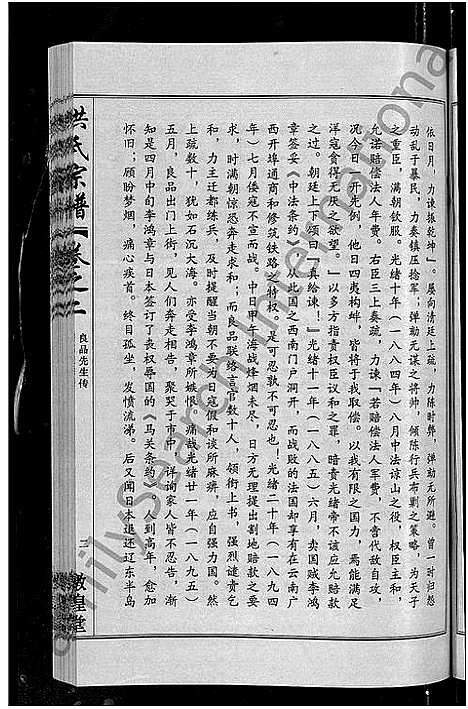 依日月,力谏振乾坤”。屡向清廷上疏,力陈时弊,弹劾无所避。曾一时归怨
动乱于暴民,力奏镇压捻军;弹劾无谋之将帅,倾陈行兵布剿之策略,为天子
之重臣,满朝钦服。光绪十年(一八八四年)八月中法谅山之役,权臣主和,
允诺赔偿法人年费。右臣三上奏疏,力谏「若赔偿法人军费,不啻代敌自攻,
况今日一开先例,他日四夷构衅,皆将于我取偿。以我有限之国力,焉能满足
洋寇贪得无厌之欲望。」以多方指责权臣议和之罪,暗责光绪帝不该应允赔款
之过。朝廷上下颂曰『真给谏!』光绪十一年(一八八五)六月,卖国贼李鸿
章签妥《中法条约》,从此国之西南门户洞开,而战败的法国却享有在云南广
西开埠通商和修筑铁路之特权。是可忍孰不可忍也!光绪二十年(一八九四
年)七月倭寇不宣而战。中日甲午海战烽烟未尽,日方无理提出割地赔款之要
求,时满朝惊恐奔走求和,而良品联络言官数十人,领衔上书,强烈谴责乞
和,力主迁都练兵,及时提醒当朝不要为日寇假和谈所麻痹,应自强力国。然
上疏数十,犹如石沉大海。亦受李鸿章所嫉恨。痛战光绪廿一年(一八九五)
五月,良品出门上街,见人们奔走相告,聚哭于市中,详询家人皆不忍告,渐
知是四月中旬李鸿章与日本签订了丧权辱国的《马关条约》。人到高年,愈加
怀旧;顾盼梦烟,痛心疾首。终日孤坐,发愤流涕。后又闻日本退还辽东半岛
洪氏宗谱
卷之二
良品先生传
三
敦皇堂